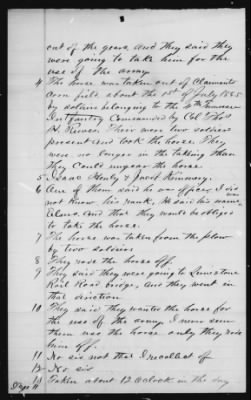 out of the gears, and they said they
were going to take him for the
use of the army.
4 The horse was taken out of Claimants
corn field, about the 1st of July 1865
by soldiers belonging to the 4th Tennessee
Infantry Commanded by Col Thos
H. Reeves. Their were two soldiers
present and took the horse. They
were no longer in the taking than
they could ungear the horse.
5 Isaac Henly & Jacob Kinnory.
6 One of them said he was officer I did
not know his rank, He said his name
was. And that they would be obliged
to take the horse.
7 The horse was taken from the plow
by two soldiers
8 They rode the horse off.
9 They said they were going to Limestone
Rail Road bridge, and they went in
that direction
10 They said they wanted the horse for
the use of the army. I never seen
them use the horse only they rode
him off.
11 No sir not that I recollect of
12 No sir
13 Taken about 12 oclock in the day